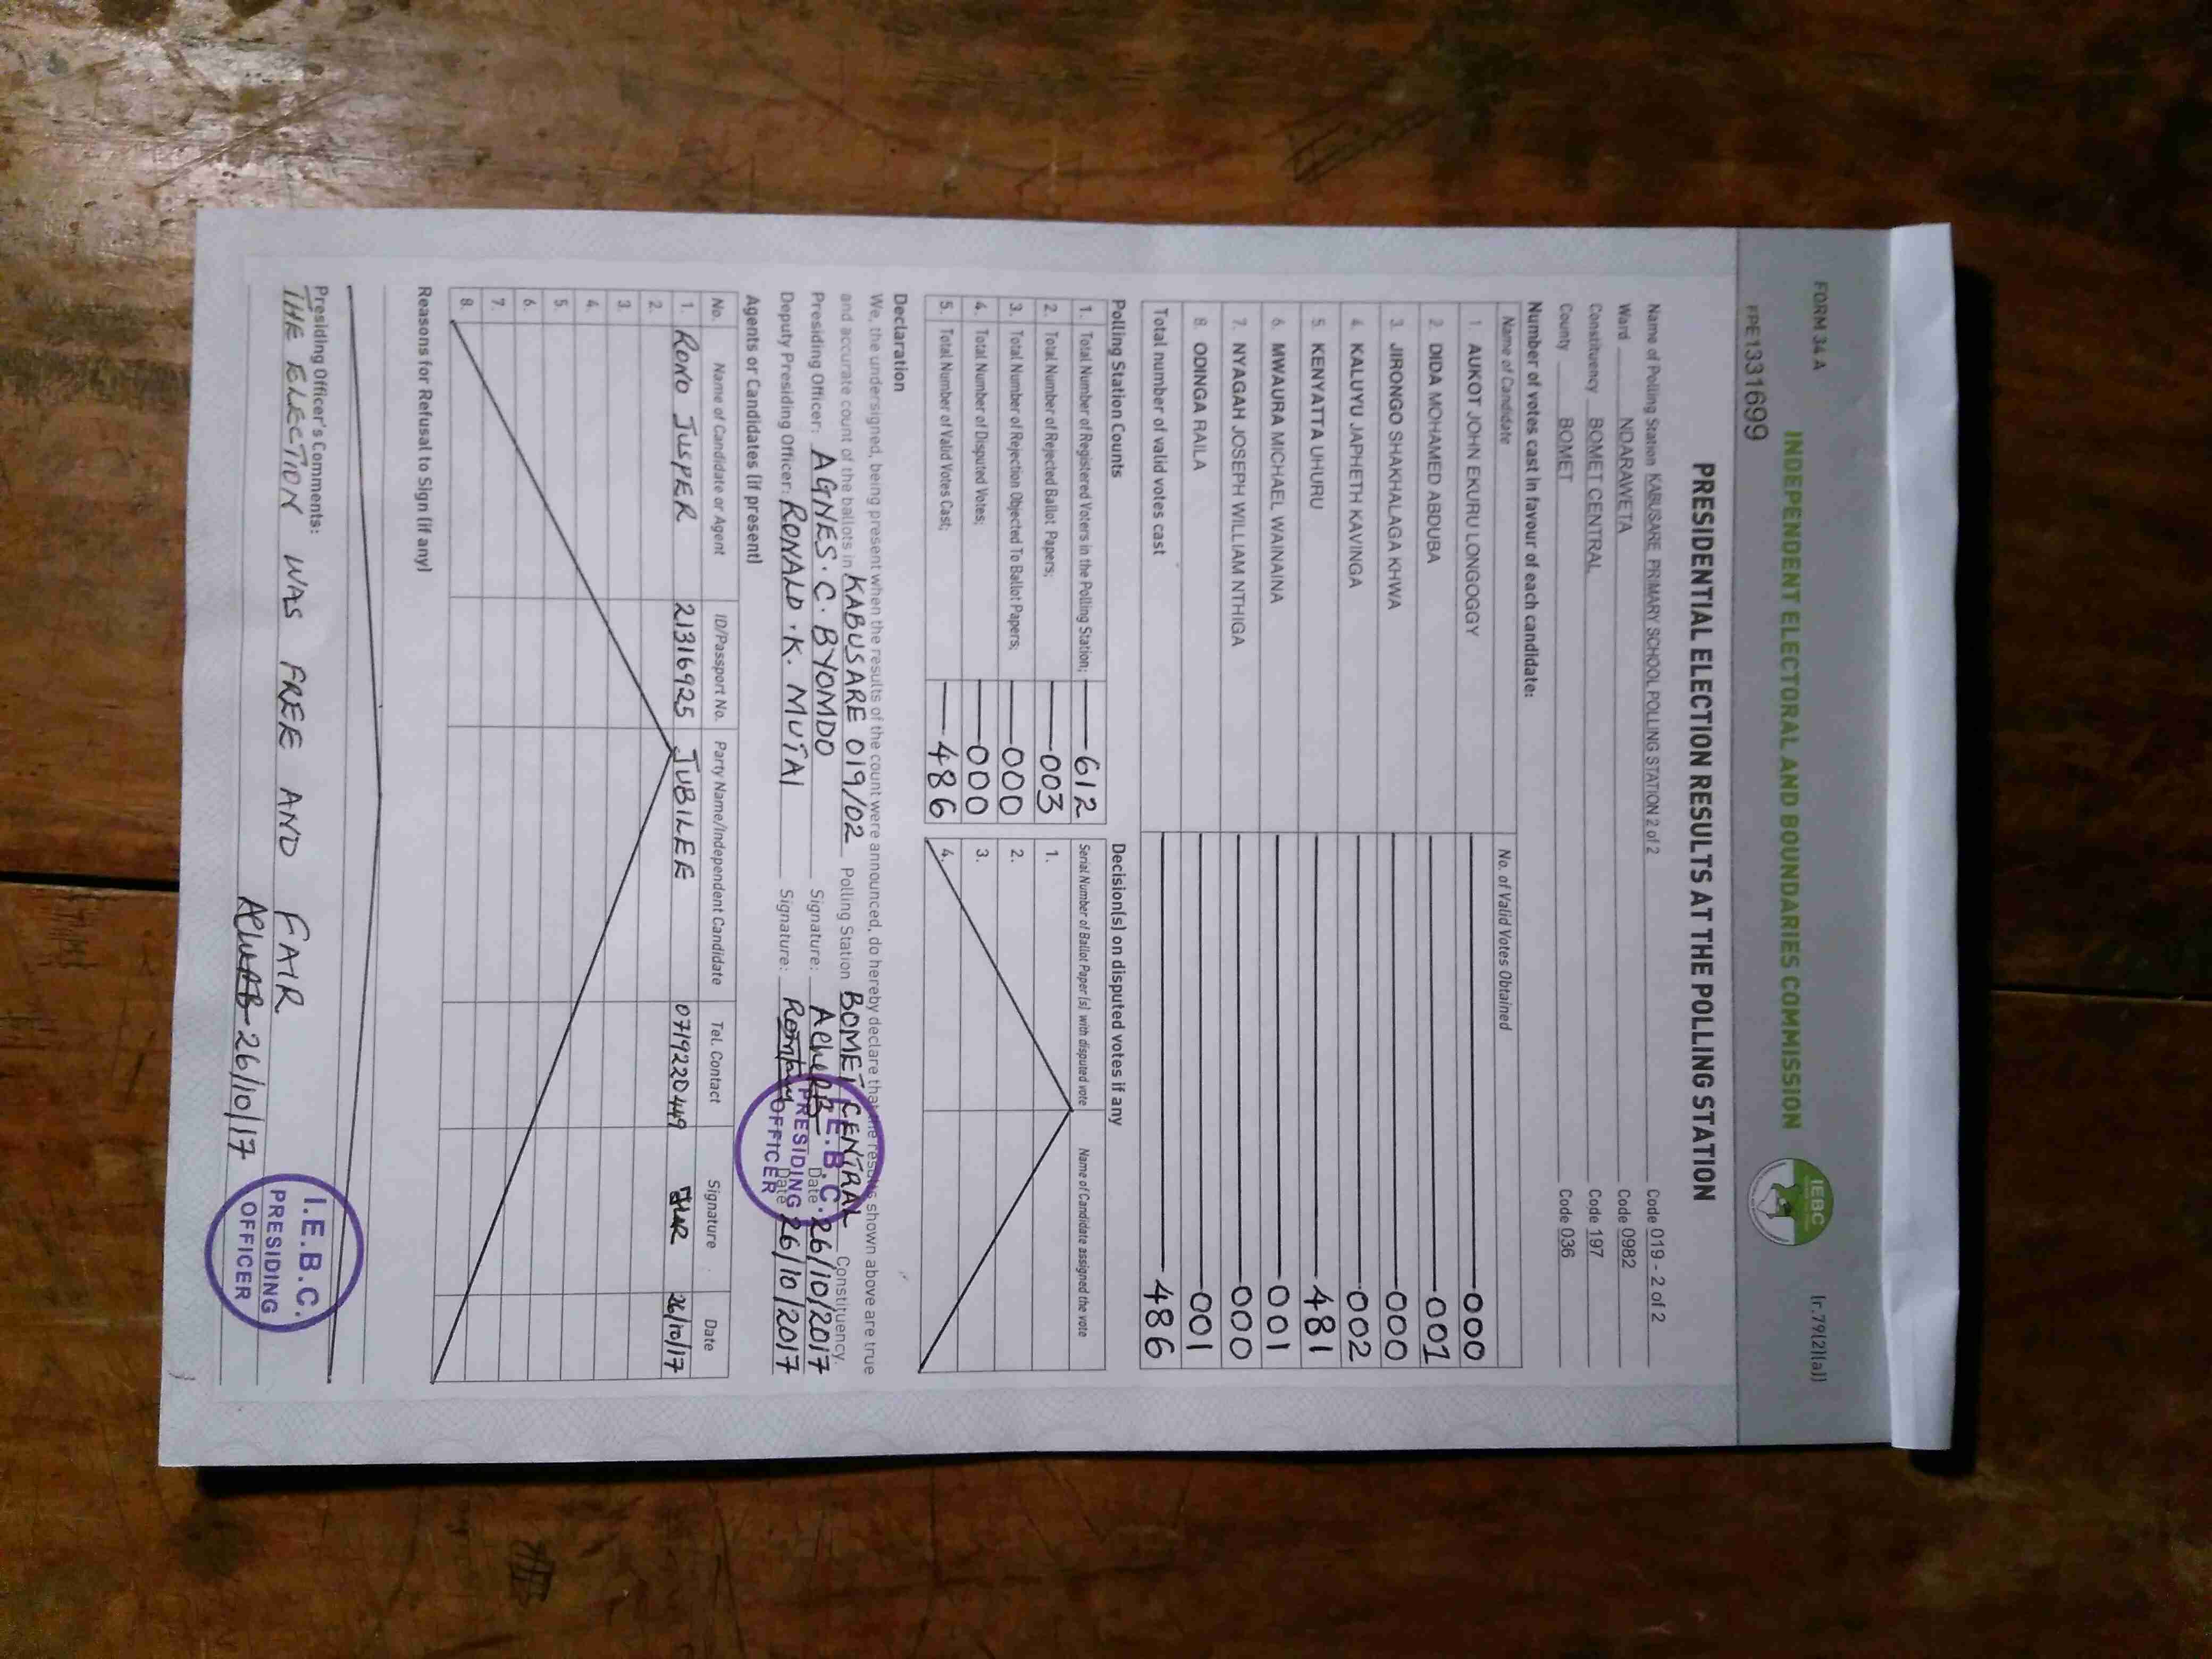 FORM 34 A
(r.79(2)(a))
INDEPENDENT ELECTORAL AND BOUNDARIES COMMISSION
IEBC
FPE1331699
PRESIDENTIAL ELECTION RESULTS AT THE POLLING STATION
Name of Polling Station KABUSARE PRIMARY SCHOOL POLLING STATION 2 of 2 Code 019 - 2 of 2
Ward NDARAWETA Code 0982
Constituency BOMET CENTRAL Code 197
County BOMET Code 036
Number of votes cast in favour of each candidate:
Name of Candidate No. of Valid Votes Obtained
1. AUKOT JOHN EKURU LONGOGGY 000
2. DIDA MOHAMED ABDUBA 001
3. JIRONGO SHAKHALAGA KHWA 000
4. KALUYU JAPHETH KAVINGA 002
5. KENYATTA UHURU 481
6. MWAURA MICHAEL WAINAINA 001
7. NYAGAH JOSEPH WILLIAM NTHIGA 000
8. ODINGA RAILA 001
Total number of valid votes cast 486
Polling Station Counts
1. Total Number of Registered Voters in the Polling Station; 612
2. Total Number of Rejected Ballot Papers; 003
3. Total Number of Rejection Objected To Ballot Papers; 000
4. Total Number of Disputed Votes; 000
5. Total Number of Valid Votes Cast; 486
Decision(s) on disputed votes if any
Serial Number of Ballot Paper (s) with disputed vote Name of Candidate assigned the vote
1.
2.
3.
4.
Declaration
We, the undersigned, being present when the results of the count were announced, do hereby declare that the results shown above are true
and accurate count of the ballots in KABUSARE 019/02 Polling Station BOMET CENTRAL Constituency.
Presiding Officer: AGNES. C. BYOMDO Signature: Date 26/10/2017
Deputy Presiding Officer: RONALD . K. MUTAI Signature: Date 26/10/2017
I.E.B.C.
PRESIDING
OFFICER
Agents or Candidates (if present)
No. Name of Candidate or Agent ID/Passport No. Party Name/Independent Candidate Tel. Contact Signature Date
1. RONO JUSPER 21316925 JUBILEE 0719220449 26/10/17
2.
3.
4.
5.
6.
7.
8.
Reasons for Refusal to Sign (if any)
Presiding Officer's Comments:
THE ELECTION WAS FREE AND FAIR
26/10/17
I.E.B.C.
PRESIDING
OFFICER